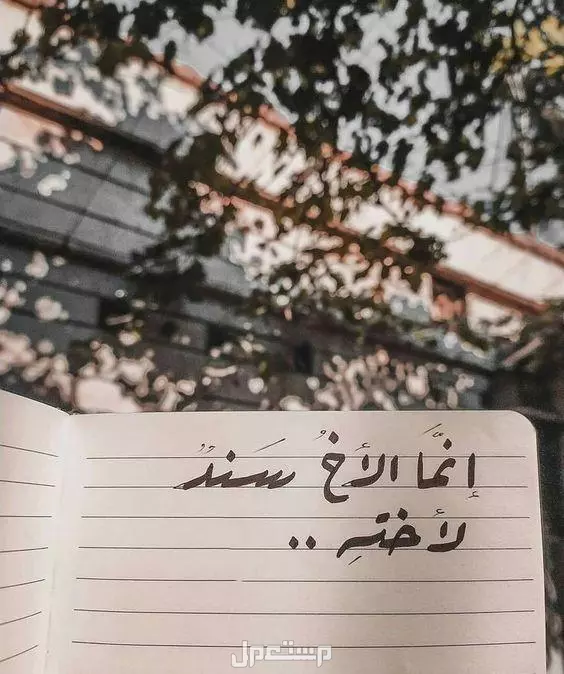 إنَّمَا الأخُ سَندٌ
لأختهِ ..
مستعمل